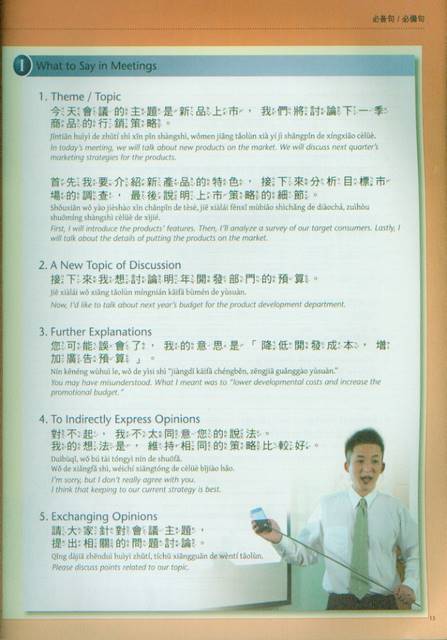 必備句 / 必備句
1 What to Say in Meetings
1. Theme / Topic
今天會議的主題是新品上市，我們將討論下一季
商品的行銷策略。
Jīntiān huìyì de zhǔtí shì xīn pǐn shàngshì, wǒmen jiāng tǎolùn xià yí jì shāngpǐn de xíngxiāo cèlüè.
In today's meeting, we will talk about new products on the market. We will discuss next quarter's
marketing strategies for the products.
首先我要介紹新產品的特色，接下來分析目標市
場的調查，最後說明上市策略的細節。
Shǒuxiān wǒ yào jièshào xīn chǎnpǐn de tèsè, jiē xiàlái fēnxī mùbiāo shìchǎng de diàochá, zuìhòu
shuōmíng shàngshì cèlüè de xìjié.
First, I will introduce the products' features. Then, I'll analyze a survey of our target consumers. Lastly, I
will talk about the details of putting the products on the market.
2. A New Topic of Discussion
接下來我想討論明年開發部門的預算。
Jiē xiàlái wǒ xiǎng tǎolùn míngnián kāifā bùmén de yùsuàn.
Now, I'd like to talk about next year's budget for the product development department.
3. Further Explanations
您可能誤會了，我的意思是「降低開發成本，增
加廣告預算」。
Nín kěnéng wùhuì le, wǒ de yìsi shì "jiàngdī kāifā chéngběn, zēngjiā guǎnggào yùsuàn."
You may have misunderstood. What I meant was to "lower developmental costs and increase the
promotional budget."
4. To Indirectly Express Opinions
對不起，我不太同意您的說法。
我的想法是，維持相同的策略比較好。
Duìbuqǐ, wǒ bú tài tóngyì nín de shuōfǎ.
Wǒ de xiǎngfǎ shì, wéichí xiāngtóng de cèlüè bǐjiào hǎo.
I'm sorry, but I don't really agree with you.
I think that keeping to our current strategy is best.
5. Exchanging Opinions
請大家針對會議主題，
提出相關的問題討論。
Qǐng dàjiā zhēnduì huìyì zhǔtí, tíchū xiāngguān de wèntí tǎolùn.
Please discuss points related to our topic.